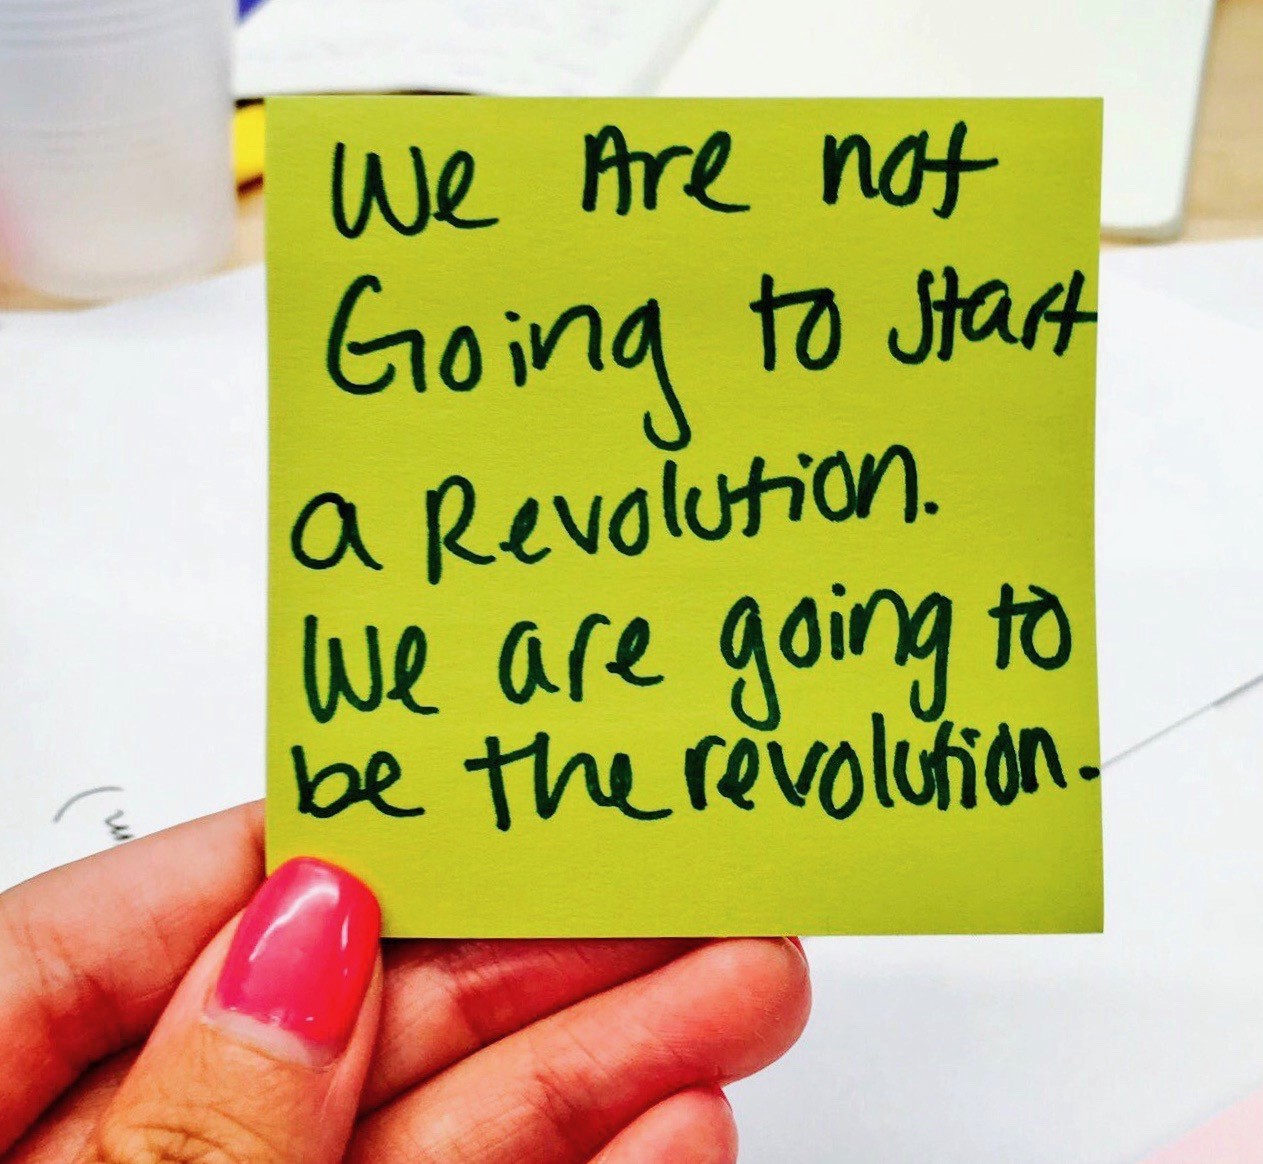 We Are not
Going to start
a Revolution.
We are going to
be the revolution.